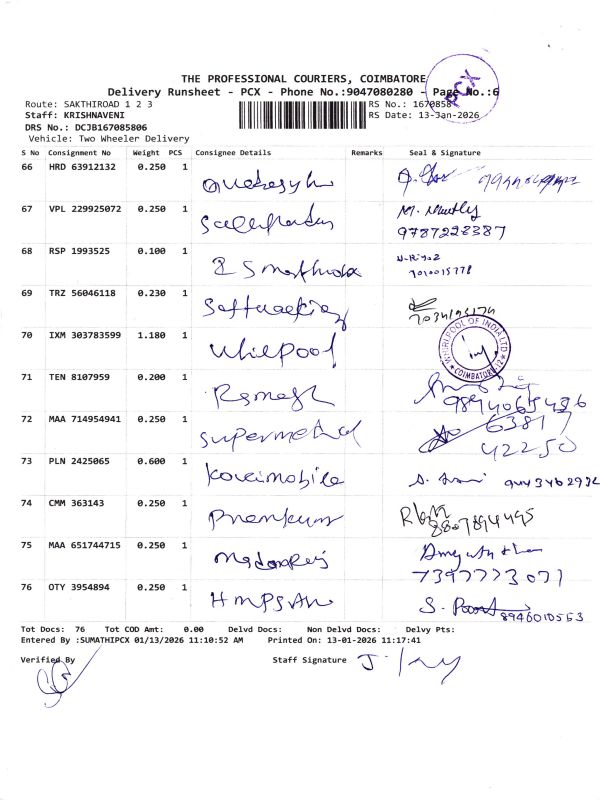 THE PROFESSIONAL COURIERS, COIMBATORE
Delivery Runsheet - PCX - Phone No.:9047080280 - Page No.:6
PCX
Route: SAKTHIROAD 1 2 3
RS No.: 1670858
Staff: KRISHNAVENI
RS Date: 13-Jan-2026
DRS No.: DCJB167085806
Vehicle: Two Wheeler Delivery
S No Consignment No Weight PCS Consignee Details Remarks Seal & Signature
66 HRD 63912132 0.250 1
67 VPL 229925072 0.250 1
9787228387
68 RSP 1993525 0.100 1
69 TRZ 56046118 0.230 1
70 IXM 303783599 1.180 1 Whilpool
WHIRLPOOL OF INDIA LTD. COIMBATORE-12
71 TEN 8107959 0.200 1 Ramesh
72 MAA 714954941 0.250 1 Supermethal
63817
42250
73 PLN 2425065 0.600 1 Kovaimobile
74 CMM 363143 0.250 1 Premkumar
8807894495
75 MAA 651744715 0.250 1 Madanraj
7397773071
76 OTY 3954894 0.250 1
8946010553
Tot Docs: 76 Tot COD Amt: 0.00 Delvd Docs: Non Delvd Docs: Delvy Pts:
Entered By :SUMATHIPCX 01/13/2026 11:10:52 AM Printed On: 13-01-2026 11:17:41
Verified By Staff Signature